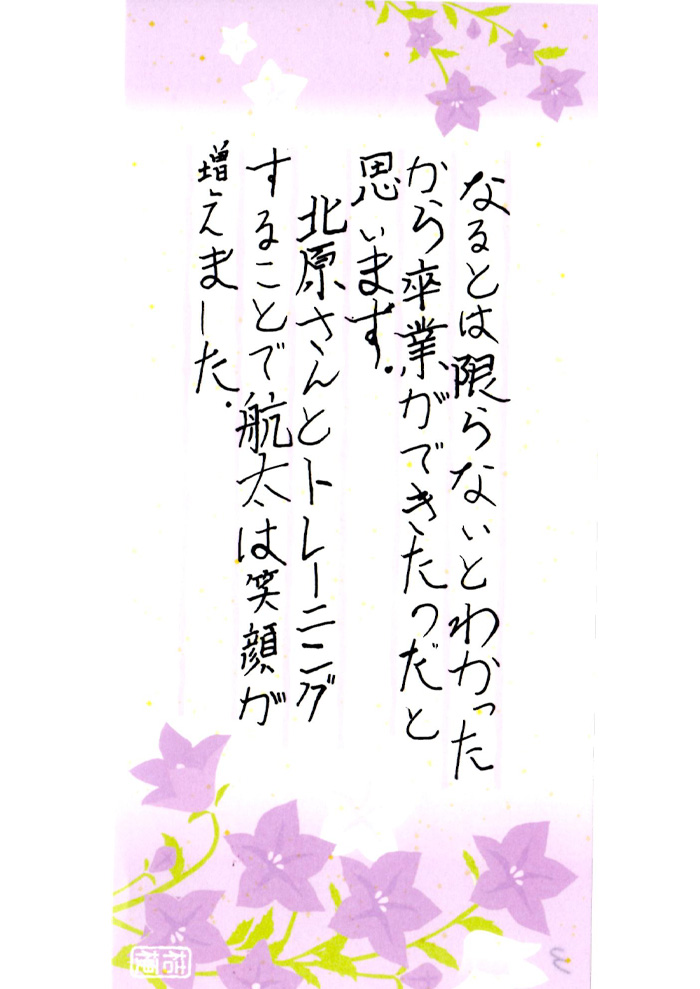 なるとは限らないとわかった
から卒業ができたのだと
思います。
北原さんとトレーニング
することで航太は笑顔が
増えました。